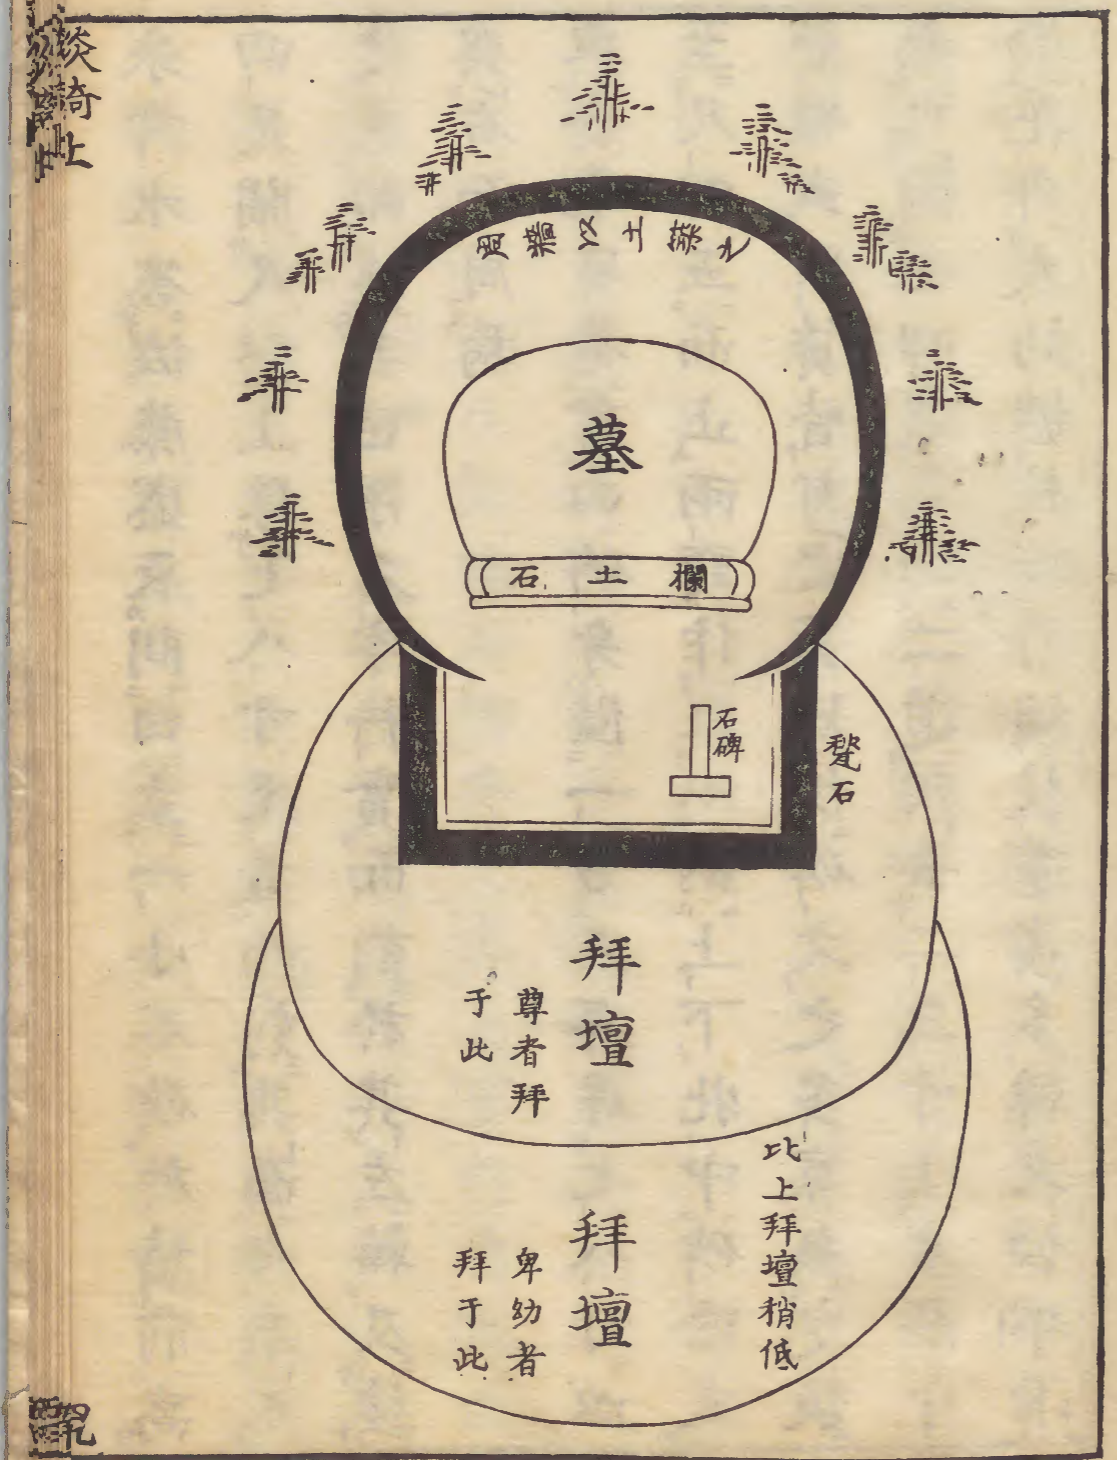 談綺上
周牆以土築之
墓
石土欄
石碑
甃石
拜壇
尊者拜
于此
比上拜壇稍低
拜壇
卑幼者
拜于此